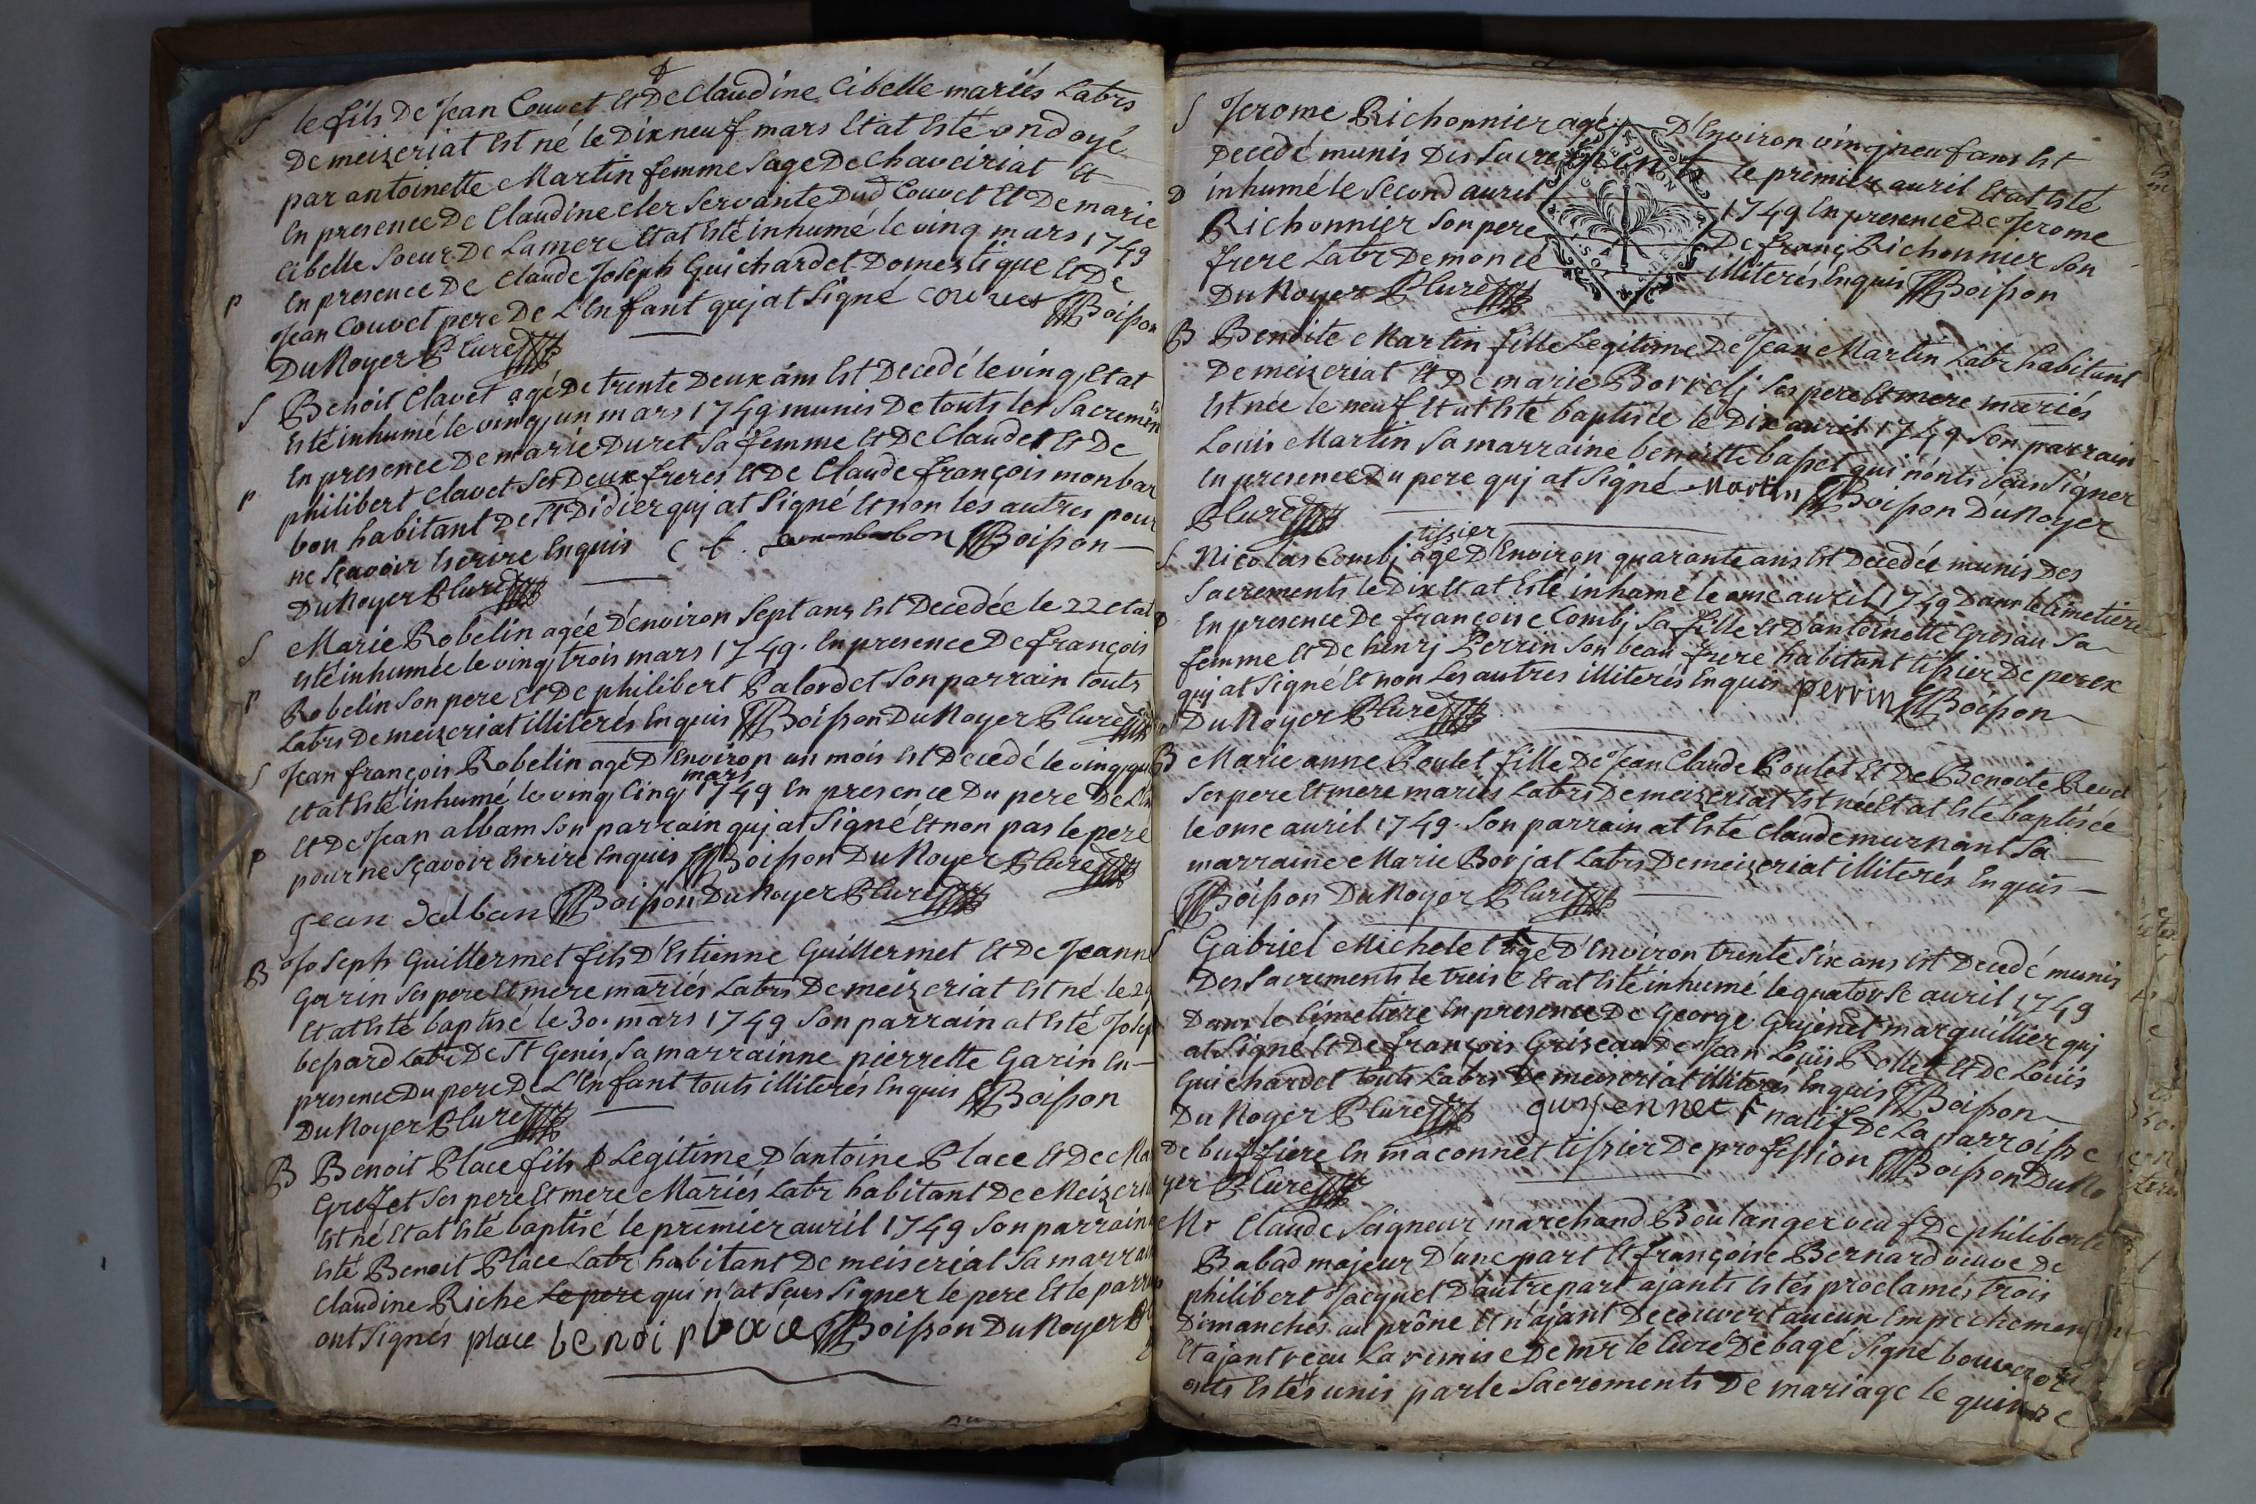 S le fils De Jean Couvet Et De Claudine Cibelle mariés Labrs
De meizeriat Est né le Dix neuf mars Et at Esté ondoyé
par antoinette Martin femme Sage De Chaveiriat Et
En presence De Claudine cler Servante Dud Couvet Et De marie
Cibelle Soeur De La mere Et at Esté inhumé le ving mars 1749
P En presence De Claude Joseph Guichardet Domestique Et De
Jean Couvet pere De L'Enfant quj at Signé couvet Boisson
Du Noyer P Curé
S Benoit Clavet agé De trente Deux ans Est Decedé le ving Et at
Esté inhumé le ving un mars 1749 munis De touts les Sacremen
En presence De marie Duret Sa femme Et De Claude Et De
P philibert Clavet Ses Deux freres Et De Claude françois monbar
bon habitant De St Didier quj at Signé Et non les autres pour
ne Sçavoir Escrire Enquis c f Boisson
Du Noyer P Curé
S Marie Robelin agée D'environ Sept ans Est Decedée le 22 et at
esté inhumée le ving trois mars 1749. En presence De françois
P Robelin Son pere Et De philibert Palordet Son parrain touts
Labrs De meizeriat illiterés Enquis Boisson Du Noyer P Curé
S Jean françois Robelin agé D'Environ un mois Est Decedé le ving
mars
et at Esté inhumé le ving Cinq 1749 En presence Du pere De
Et De Jean albam Son parrain quj at Signé Et non pas le pere
P pour ne Sçavoir Escrire Enquis Boisson Du Noyer P Curé
Jean dalban Boisson Du Noyer P Curé
B Joseph Guillermet fils D'Estienne Guillermet Et De Jeanne
Garin Ses pere Et mere mariés Labrs De meizeriat Est né le 29
Et at Esté baptisé le 30. mars 1749 Son parrain at Esté Josep
bessard Labr De St Genis, Sa marrainne pierrette Garin En
presence Du pere De L'Enfant touts illiterés Enquis Boisson
Du Noyer P Curé
B Benoit Place fils Legitime D'antoine Place Et De Ma
Grefet Ses pere Et mere Mariés Labr habitant De Meizeria
Est né Et at Esté baptisé le premier avril 1749 Son parrain
Esté Benoit Place Labr habitant De meiseriat Sa marra
Claudine Riche Le pere qui n'at Sçeus Signer le pere Et le parra
ont Signés place benoi place Boisson Du Noyer
S Jerome Richonnier agé D'Environ ving neuf ans Est
Decedé munis Des Sacrements le premier avril Et at Esté
D inhumé le Second avril 1749 En presence De Jerome
Richonnier Son pere De franç Richonnier Son
frere Labr De monce illiterés Enquis Boisson
Du Noyer P Curé
B Benoite Martin fille Legitime De Jean Martin Labr habitant
De meizeriat Et De marie Borrelj Ses pere Et mere mariés
Est née le neuf Et at Esté baptisée le Dix avril 1749 Son parrain
Louis Martin Sa marraine benoitte basset qui n'onts Sçeu Signer
En presence Du pere quj at Signé Martin Boisson Du Noyer
P Curé
tissier
S Nicolas Combj agé D'Environ quarante ans Est Decedée munis Des
Sacrements le Dix Et at Esté inhumé le onse avril 1749 Dans le Cimetiere
D En presence De françoise Combj Sa fille Et D'antoinette Grosau Sa
femme Et De henrj Perrin Son beau frere habitant tissier De perex
quj at Signé Et non Les autres illiterés Enquis perrin Boisson
Du Noyer P Curé
B Marie anne Poulet fille De Jean Claude Poulet Et De Benoite Revel
Ses pere Et mere mariés Labrs De meizeriat Est née Et at Esté baptisée
le onse avril 1749. Son parrain at Esté Claude murnant Sa
marraine Marie Borjat Labrs De meizeriat illiterés Enquis
Boisson Du Noyer P Curé
S Gabriel Michelet agé D'Environ trente Six ans Est Decedé munis
Des Sacrements le treise Et at Esté inhumé le quatorse avril 1749
Dans le Cimetiere En presence De George Gujenet marguillier quj
at Signé Et De françois Grizeau De Jean Loüis Rollet Et De Loüis
Guichardet touts Labrs De meiseriat illiterés Enquis Boisson
Du Noyer P Curé gujennet natif De La parroisse
De buffiere En maconnet tissier De profession Boisson Du No
yer P Curé
Mr Claude Seigneur marchand Boulanger veuf De philiberte
Babad majeur D'une part Et françoise Bernard veuve De
philibert Jacquet D'autre part ajants Estés proclamés trois
Dimanches au prône Et n'ajant Decouvert aucun Empechement
Et ajant reçu La remise De mr le Curé De bagé Signé
onts Estés unis par le Sacrements De mariage le quinze